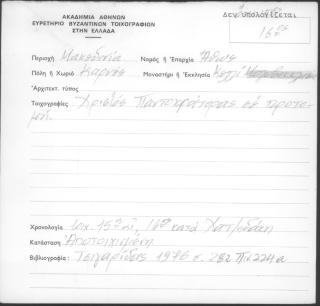 ΑΚΑΔΗΜΙΑ ΑΘΗΝΩΝ
ΕΥΡΕΤΗΡΙΟ ΒΥΖΑΝΤΙΝΩΝ ΤΟΙΧΟΓΡΑΦΙΩΝ
ΣΤΗΝ ΕΛΛΑΔΑ
Δεν υπολογίζεται
16ος
Περιοχή Μακεδονία Νομός ή Επαρχία Άθως
Πόλη ή Χωριό Καρυές Μοναστήρι ή Εκκλησία Κελλί
Αρχιτεκτ. τύπος
Τοιχογραφίες Χριστός Παντοκράτορας σε προτο-
μή.
Χρονολογία 15ος αι, 16ος κατά Χατζηδάκη
Κατάσταση Αποτοιχισμένη
Βιβλιογραφία: Τσιγαρίδας 1976 σ. 282 Πιν 224α